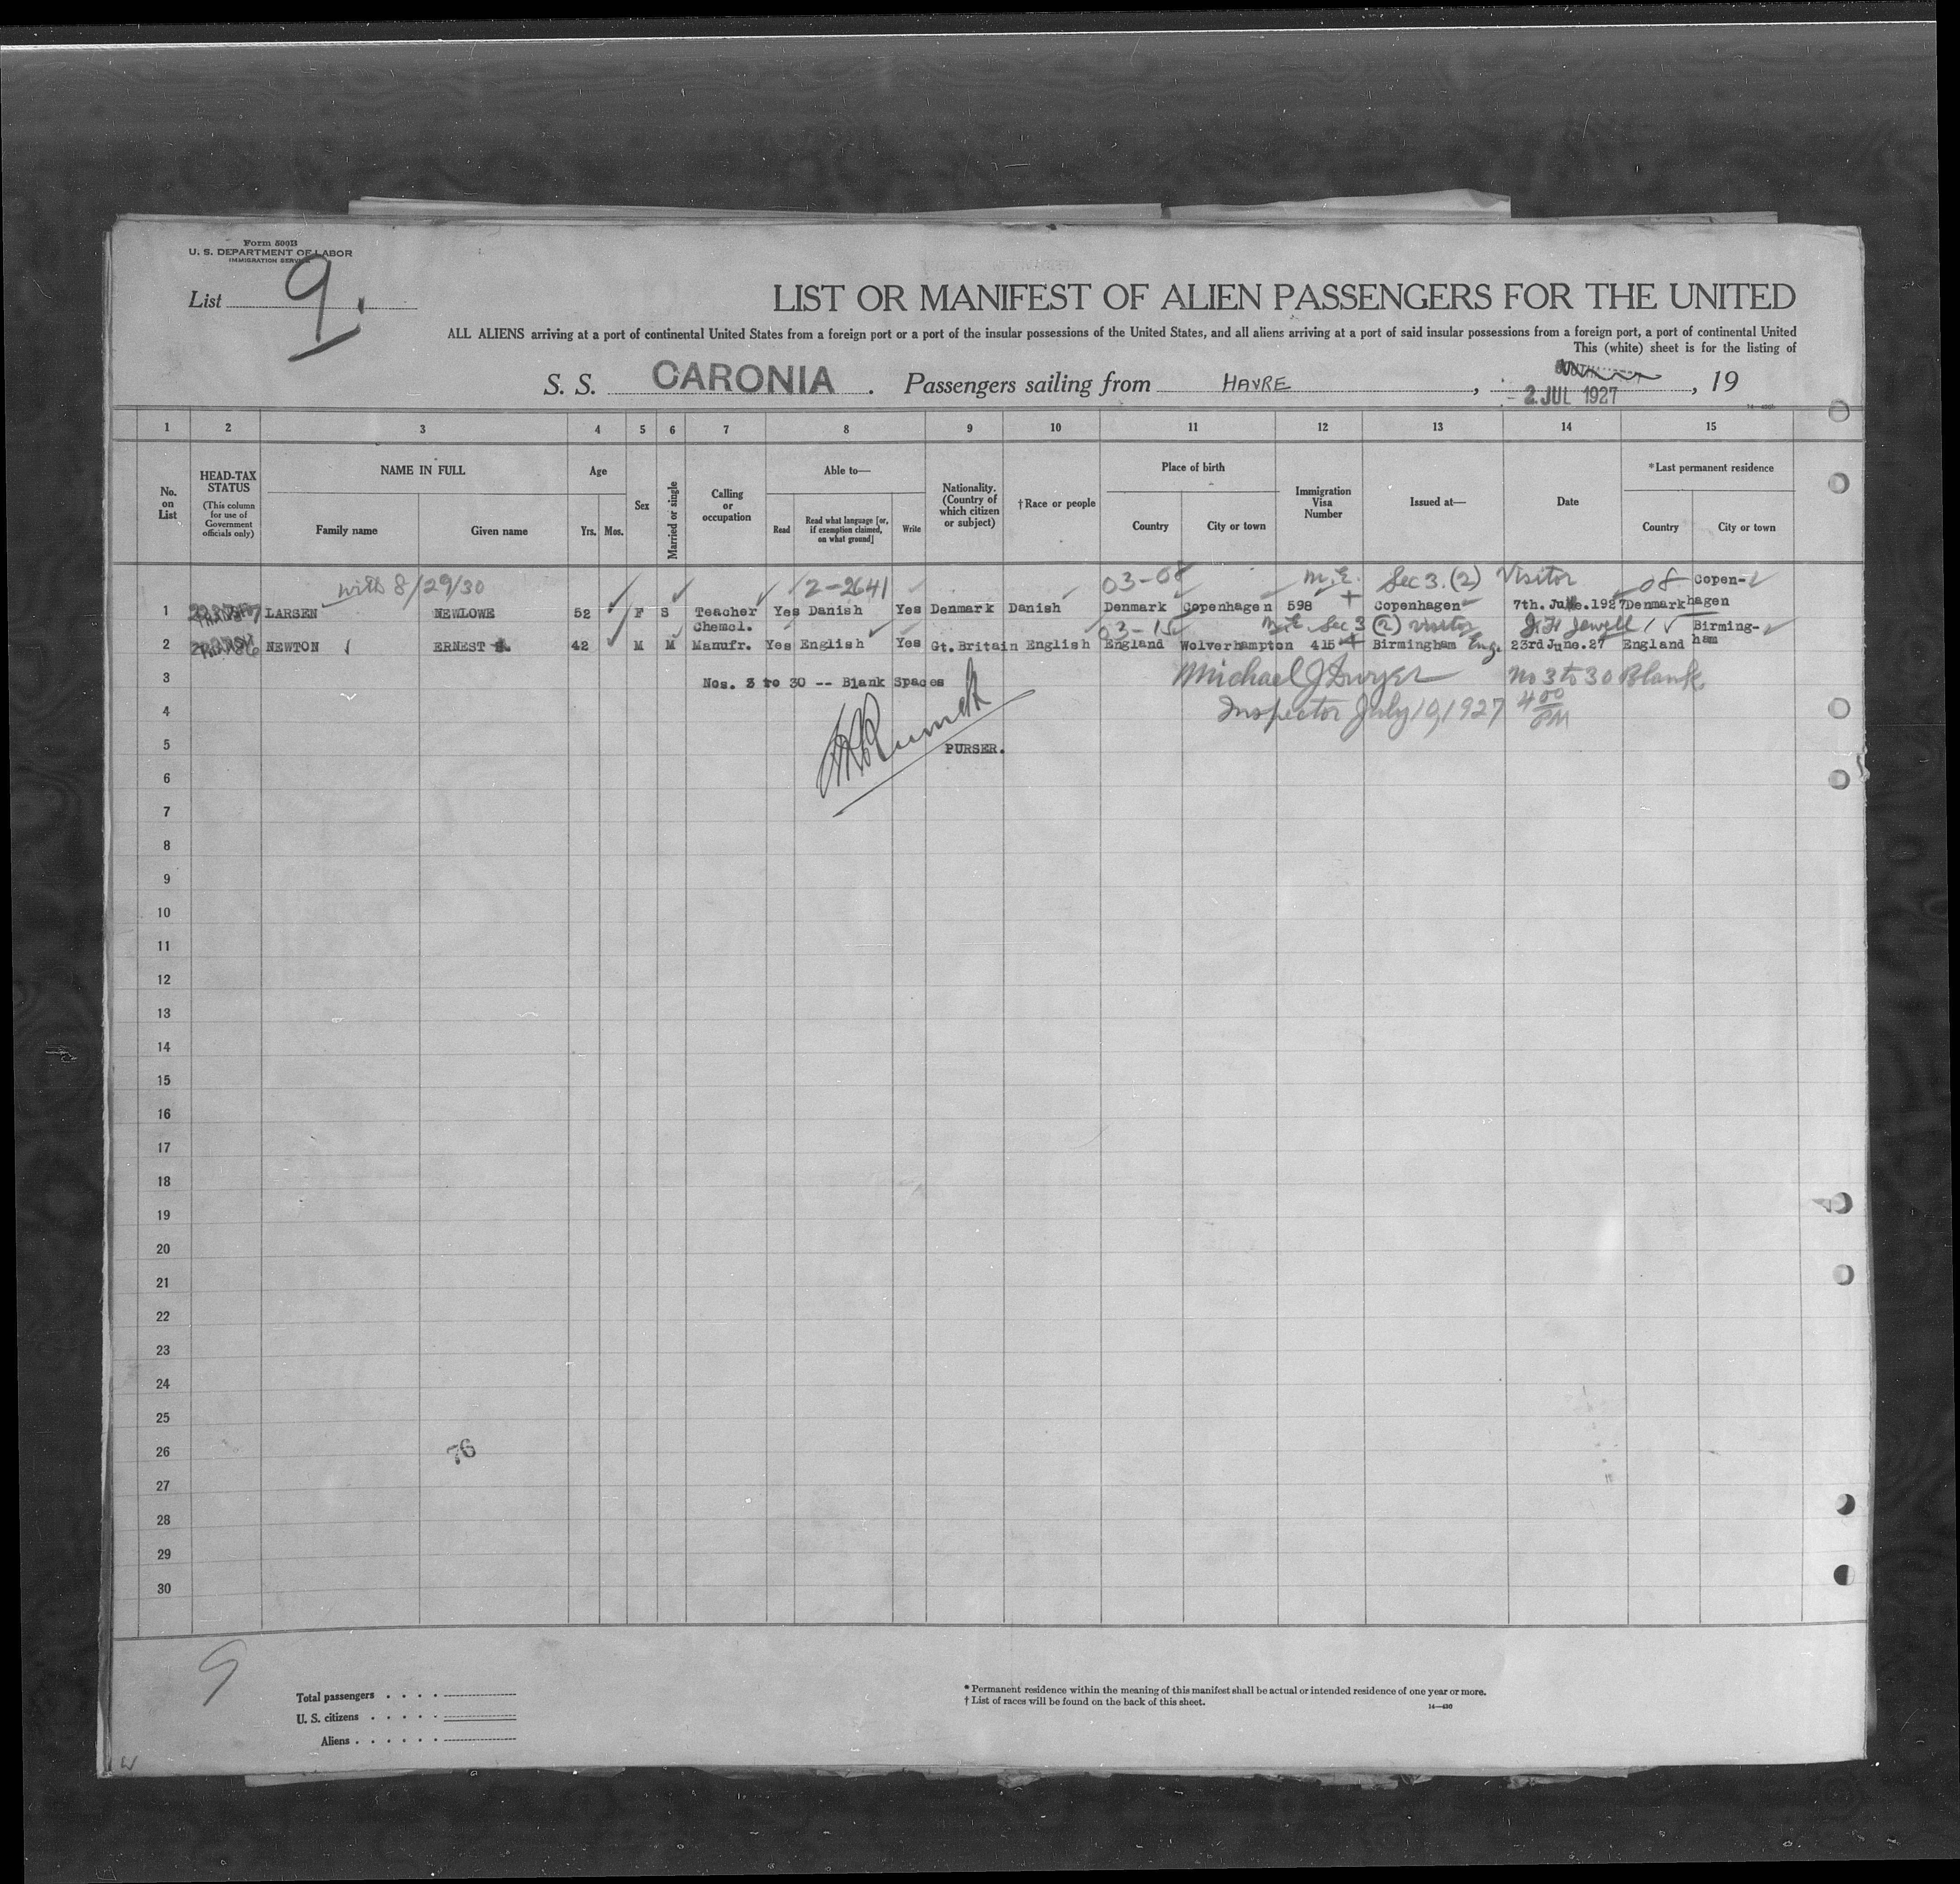 Form 500B
U. S. DEPARTMENT OF LABOR
IMMIGRATION SERVICE
List 9.
LIST OR MANIFEST OF ALIEN PASSENGERS FOR THE UNITED
ALL ALIENS arriving at a port of continental United States from a foreign port or a port of the insular possessions of the United States, and all aliens arriving at a port of said insular possessions from a foreign port, a port of continental United
This (white) sheet is for the listing of
S. S. CARONIA . Passengers sailing from HAVRE , 2 JUL 1927 , 19
1 2 3 4 5 6 7 8 9 10 11 12 13 14 15
No. on List
HEAD-TAX STATUS (This column for use of Government officials only)
NAME IN FULL
Family name Given name
Age
Yrs. Mos.
Sex
Married or single
Calling or occupation
Able to—
Read Read what language [or, if exemption claimed, on what ground] Write
Nationality. (Country of which citizen or subject)
†Race or people
Place of birth
Country City or town
Immigration Visa Number
Issued at—
Date
*Last permanent residence
Country City or town
with 8/29/30 2-2641 03-08 Sec 3. (2) Visitor 08 Copen-
1 LARSEN NEWLOWE 52 F S Teacher Yes Danish Yes Denmark Danish Denmark Copenhagen 598 Copenhagen 7th. June.1927 Denmark hagen
Chemcl. 03-15 Sec 3 (2) Visitor J. H Jewell Birming-
2 NEWTON ERNEST 42 M M Manufr. Yes English Yes Gt. Britain English England Wolverhampton 415 Birmingham Eng. 23rd June. 27 England ham
3 Nos. 3 to 30 -- Blank Spaces Michael J Dwyer No 3 to 30 Blank.
4 Inspector July 10, 1927 4 00 PM
5 PURSER.
6
7
8
9
10
11
12
13
14
15
16
17
18
19
20
21
22
23
24
25
26 76
27
28
29
30
9
Total passengers . . . .
U. S. citizens . . . . .
Aliens . . . . . .
* Permanent residence within the meaning of this manifest shall be actual or intended residence of one year or more.
† List of races will be found on the back of this sheet.
14—430